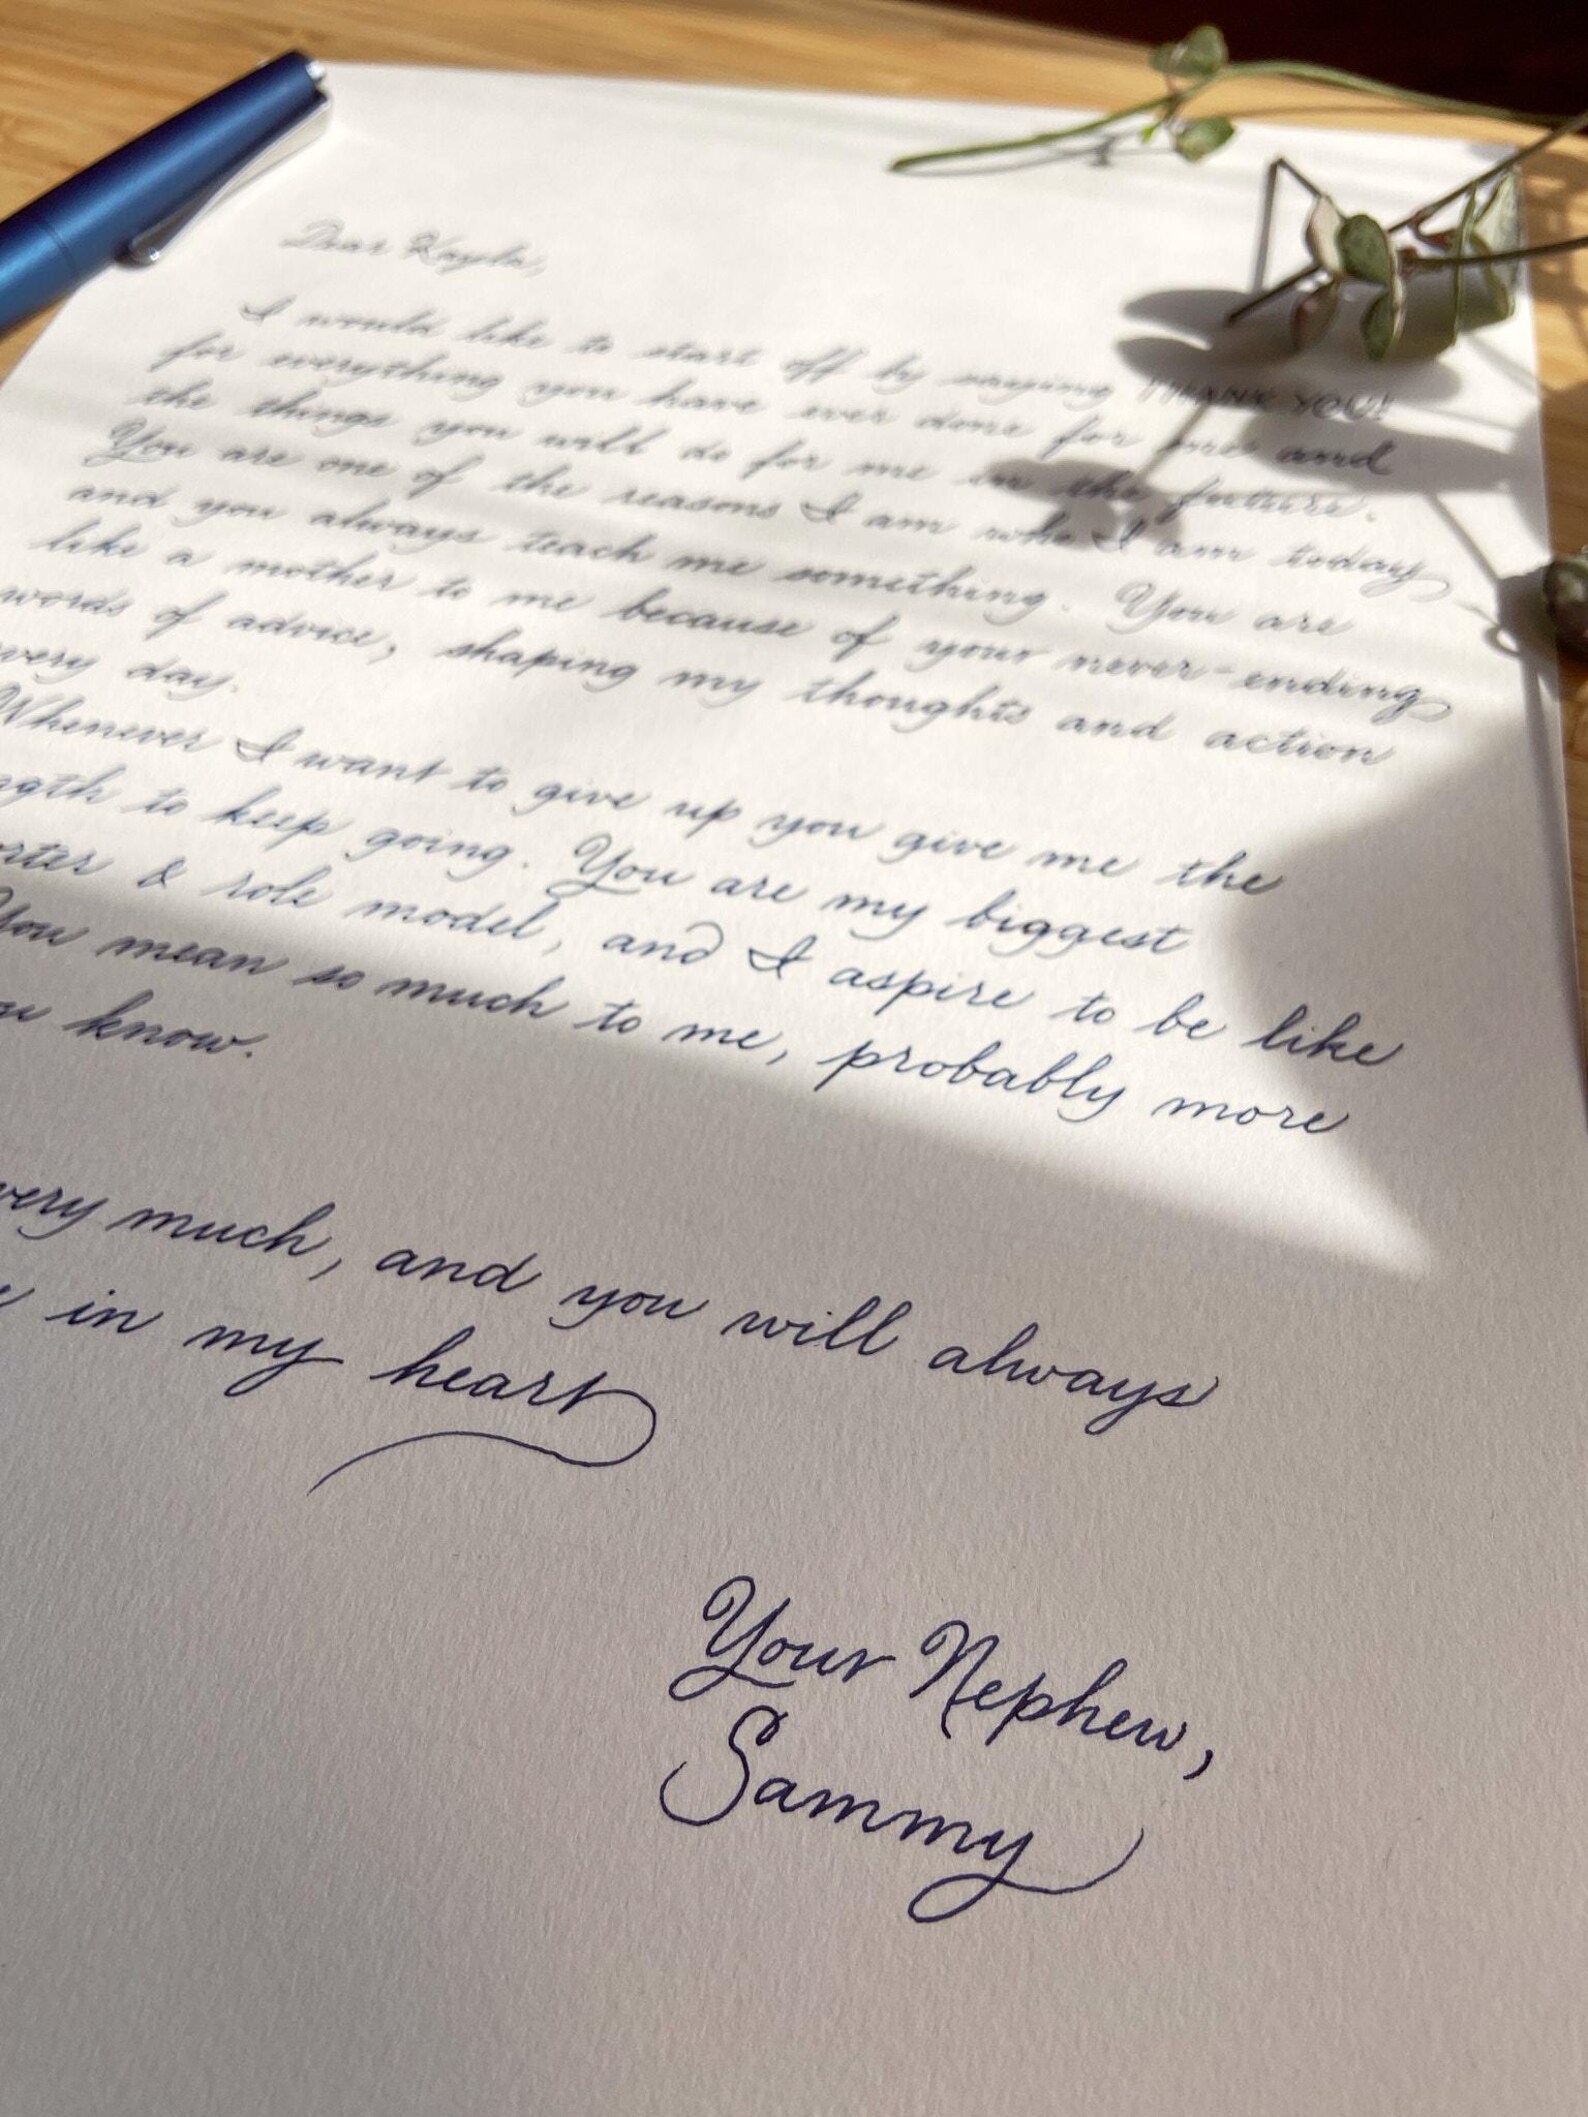 Dear Kayla,
I would like to start off by saying THANK YOU!
for everything you have ever done for me and
the things you will do for me in the future.
You are one of the reasons I am who I am today
and you always teach me something. You are
like a mother to me because of your never-ending
words of advice, shaping my thoughts and action
very day.
Whenever I want to give up you give me the
ngth to keep going. You are my biggest
orter & role model, and I aspire to be like
You mean so much to me, probably more
know.
very much, and you will always
in my heart
Your Nephew,
Sammy